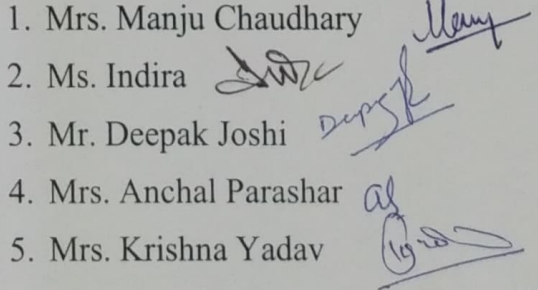 1. Mrs. Manju Chaudhary
2. Ms. Indira
3. Mr. Deepak Joshi
4. Mrs. Anchal Parashar
5. Mrs. Krishna Yadav